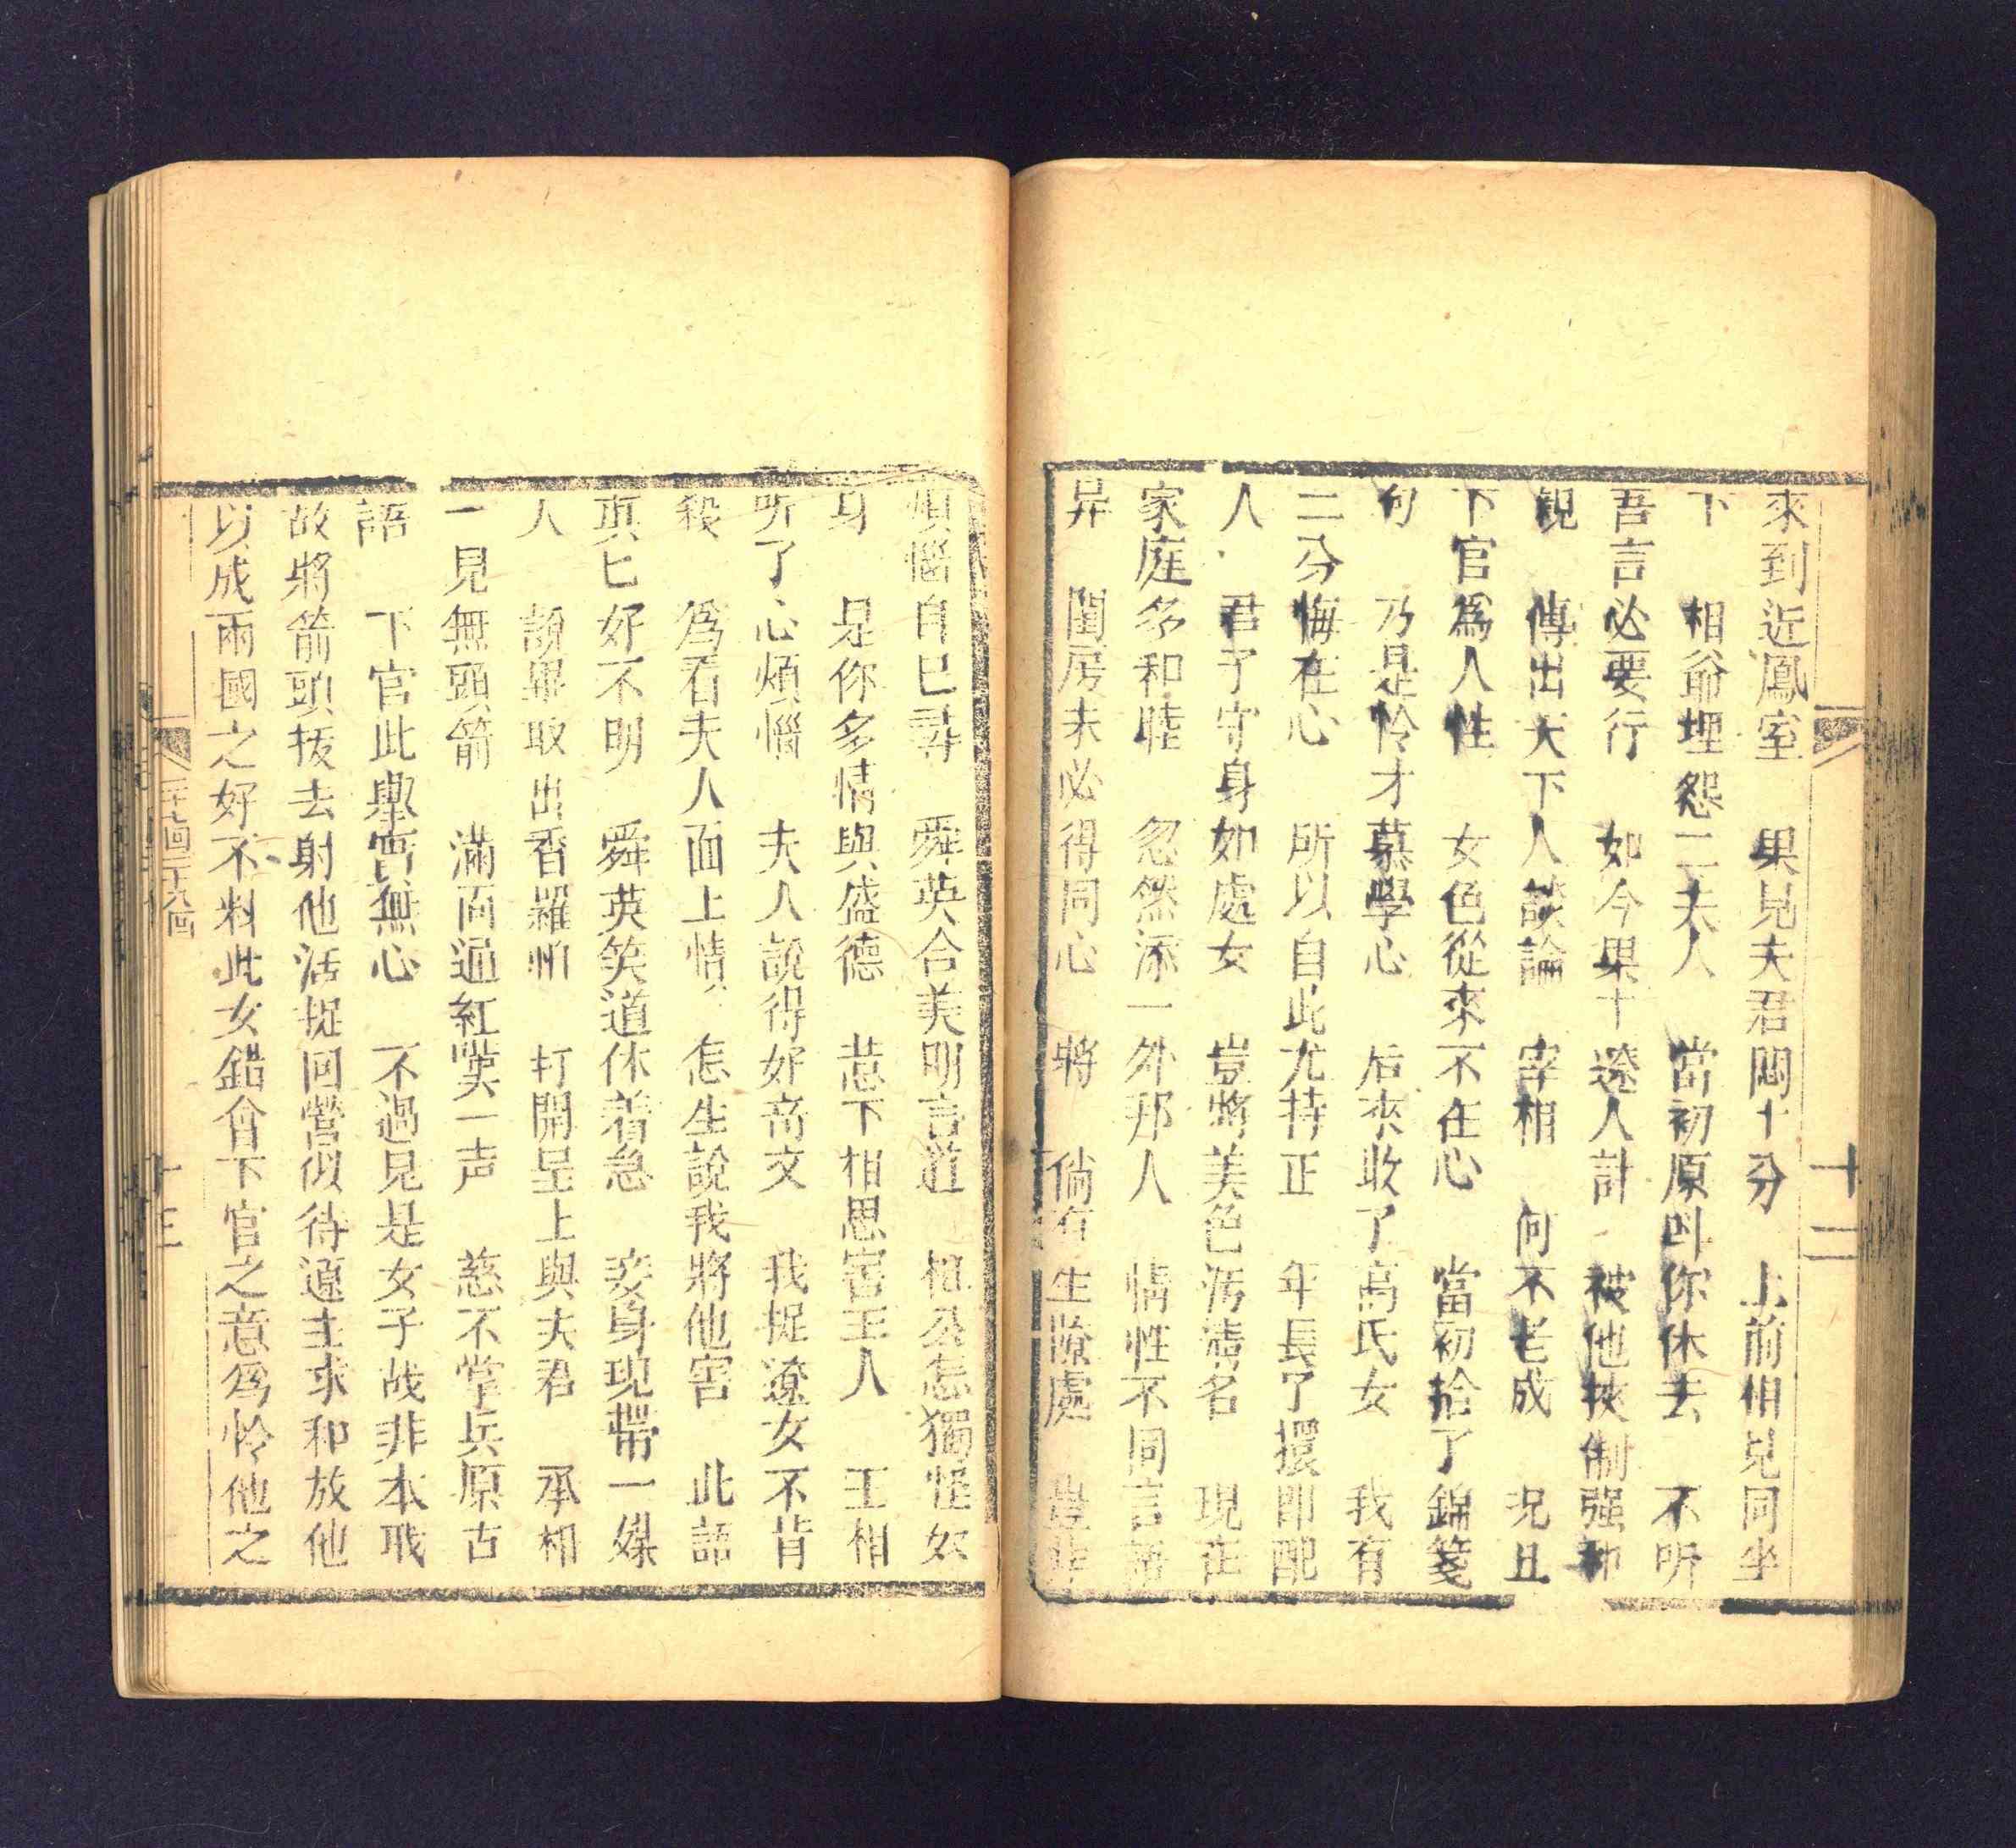 十二
來到近鳳室　果見夫君悶十分　上前相見同坐
下　相爺埋怨二夫人　當初原叫你休去　不听
吾言必要行　如今果中遼人計　被他挾制强和
親　傳出天下人談論　宰相何不老成　况且
下官為人性　女色從來不在心　當初拾了錦箋
句　乃是怜才慕學心　后來收了高氏女　我有
二分悔在心　所以自此尤持正　年長了擐即配
人　君子守身如處女　豈將美色污清名　現在
家庭多和睦　忽然添一外邦人　情性不同言語
异　閨房未必得同心　將　倘有生隙處　豈非
煩惱自己尋　舜英合美明言道　相公怎獨怪奴
身　是你多情與盛德　惹下相思害王人　王相
听了心煩惱　夫人說得好奇文　我捉遼女不肯
殺　為看夫人面上情　怎生說我將他害　此語
真乜好不明　舜英笑道休着急　妾身現帶一媒
人　說畢取出香羅帕　打開呈上與夫君　承相
一見無頭箭　滿面通紅嘆一声　慈不掌兵原古
語　下官此舉實無心　不過見是女子战非本戰
故將箭頭拔去射他活捉回營似待遼主求和放他
以成兩國之好不料此女錯會下官之意為怜他之
十三